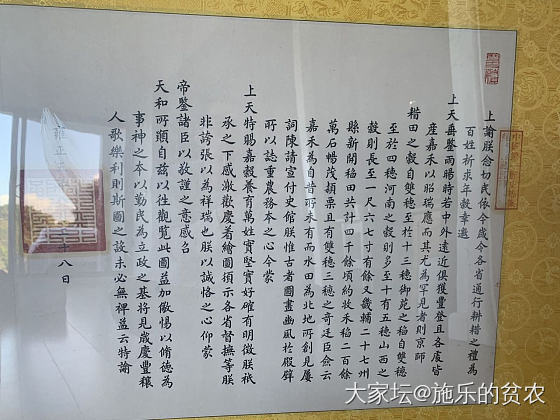 上諭朕念切民依今歲令各省通行耕耤之禮為
百姓祈求年穀幸邀
上天垂鑒雨暘時若中外遠近俱獲豐登且各處皆
產嘉禾以昭瑞應而其尤為罕見者則京師
耤田之穀自雙穗至於十三穗御苑之稻自雙穗
至於四穗河南之穀則多至十有五穗山西之
穀則長至一尺六七寸有餘又畿輔二十七州
縣新開稻田共計四千餘頃約收禾稻二百餘
萬石暢茂穎栗且有雙穗三穗之奇廷臣僉云
嘉禾為自昔所未有而水田為北地所創見屢
詞陳請宣付史館朕惟古者圖畫豳風於殿壁
所以誌重農務本之心今蒙
上天特賜嘉穀養育萬姓實堅實好確有明徵朕祇
承之下感激歡慶著繪圖頒示各省督撫等朕
非誇張以為祥瑞也朕以誠恪之心仰蒙
帝鑒諸臣以敬謹之意感召
天和所願自茲以往觀覽此圖益加儆惕以脩德為
事神之本以勤民為立政之基將見歲慶豐穰
人歌樂利則斯圖之設未必無裨益云特諭
雍正
十八日
大家坛@施乐的贫农